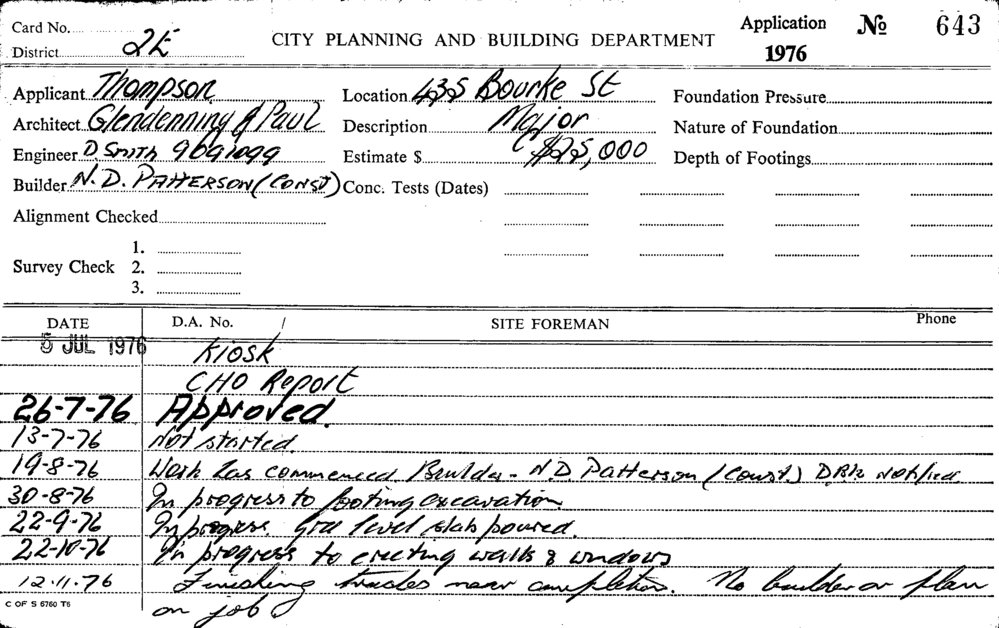 Card No.
District 2E
CITY PLANNING AND BUILDING DEPARTMENT
Application № 643
1976
Applicant Thompson
Location 435 Bourke St
Foundation Pressure
Architect Glendenning & Paul
Description Major
Nature of Foundation
Engineer D. Smith 9691099
Estimate $ $25,000
Depth of Footings
Builder N. D. Patterson (Const)
Conc. Tests (Dates)
Alignment Checked
Survey Check
1.
2.
3.
DATE D.A. No. / SITE FOREMAN Phone
5 JUL 1976 Kiosk
CHO Report
26-7-76 Approved.
13-7-76 Not started.
19-8-76 Work has commenced Builder - N.D. Patterson (Const.) notified
30-8-76 In progress to footing excavation
22-9-76 In progress. Grd level slab poured.
22-10-76 In progress to erecting walls & windows
12.11.76 Finishing trades near completion. No builder or plan
on job
C OF S 6760 T5